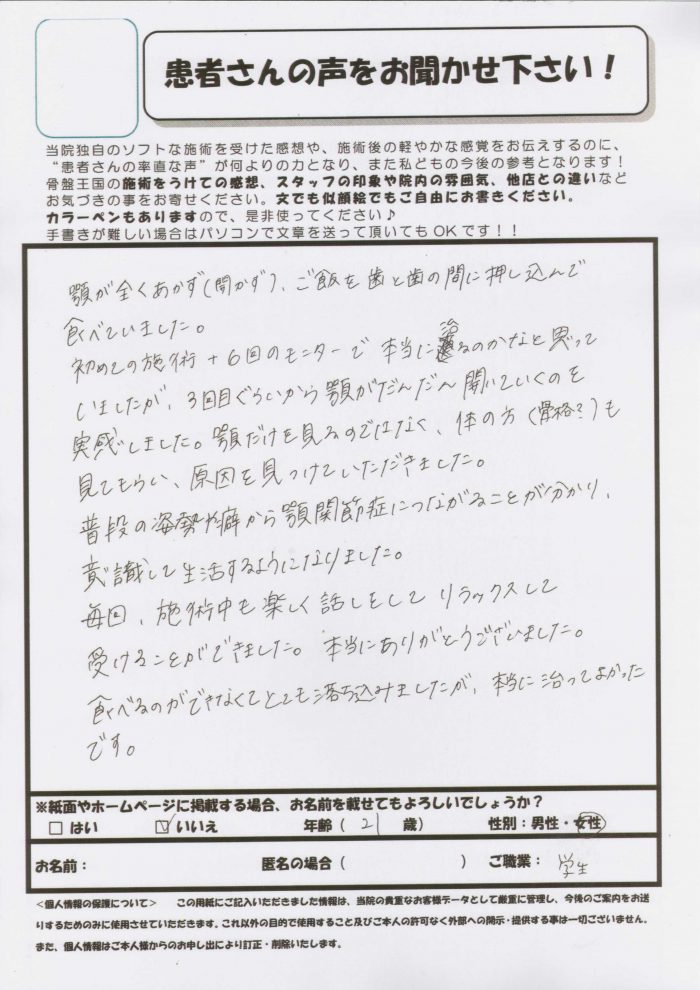 患者さんの声をお聞かせ下さい！
当院独自のソフトな施術を受けた感想や、施術後の軽やかな感覚をお伝えするのに、
“患者さんの率直な声”が何よりの力となり、また私どもの今後の参考となります！
骨盤王国の施術をうけての感想、スタッフの印象や院内の雰囲気、他店との違いなど
お気づきの事をお寄せください。文でも似顔絵でもご自由にお書きください。
カラーペンもありますので、是非使ってください♪
手書きが難しい場合はパソコンで文章を送って頂いてもOKです！！
顎が全くあかず(開かず)、ご飯を歯と歯の間に押し込んで
食べていました。
初めての施術+6回のモニターで本当に治るのかなと思って
いましたが、3回目ぐらいから顎がだんだん開いていくのを
実感しました。顎だけを見るのではなく、体の方(骨格？)も
見てもらい、原因を見つけていただきました。
普段の姿勢や癖から顎関節症につながることが分かり、
意識して生活するようになりました。
毎回、施術中も楽しく話しをしてリラックスして
受けることができました。本当にありがとうございました。
食べるのができなくてとても落ち込みましたが、本当に治ってよかった
です。
※紙面やホームページに掲載する場合、お名前を載せてもよろしいでしょうか？
□ はい ☑ いいえ 年齢（ 21 歳） 性別：男性・女性
お名前： 匿名の場合（ ） ご職業： 学生
＜個人情報の保護について＞ この用紙にご記入いただきました情報は、当院の貴重なお客様データとして厳重に管理し、今後のご案内をお送
りするためのみに使用させていただきます。これ以外の目的で使用すること及びご本人の許可なく外部への開示・提供する事は一切ございません。
また、個人情報はご本人様からのお申し出により訂正・削除いたします。